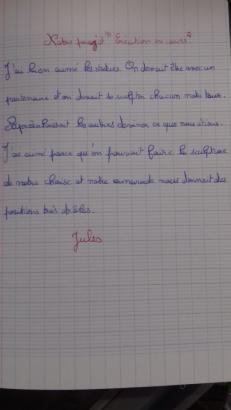 Notre projet "Exécution en cours"
J'ai bien aimé les statues. On devait être avec un
partenaire et on devait se sculpter chacun notre tour.
Après les autres deviner ce que nous étions.
J'ai aimé parce qu'on pouvait faire la sculpture
de notre choix et notre camarade nous donnait des
positions très drôles.
Jules